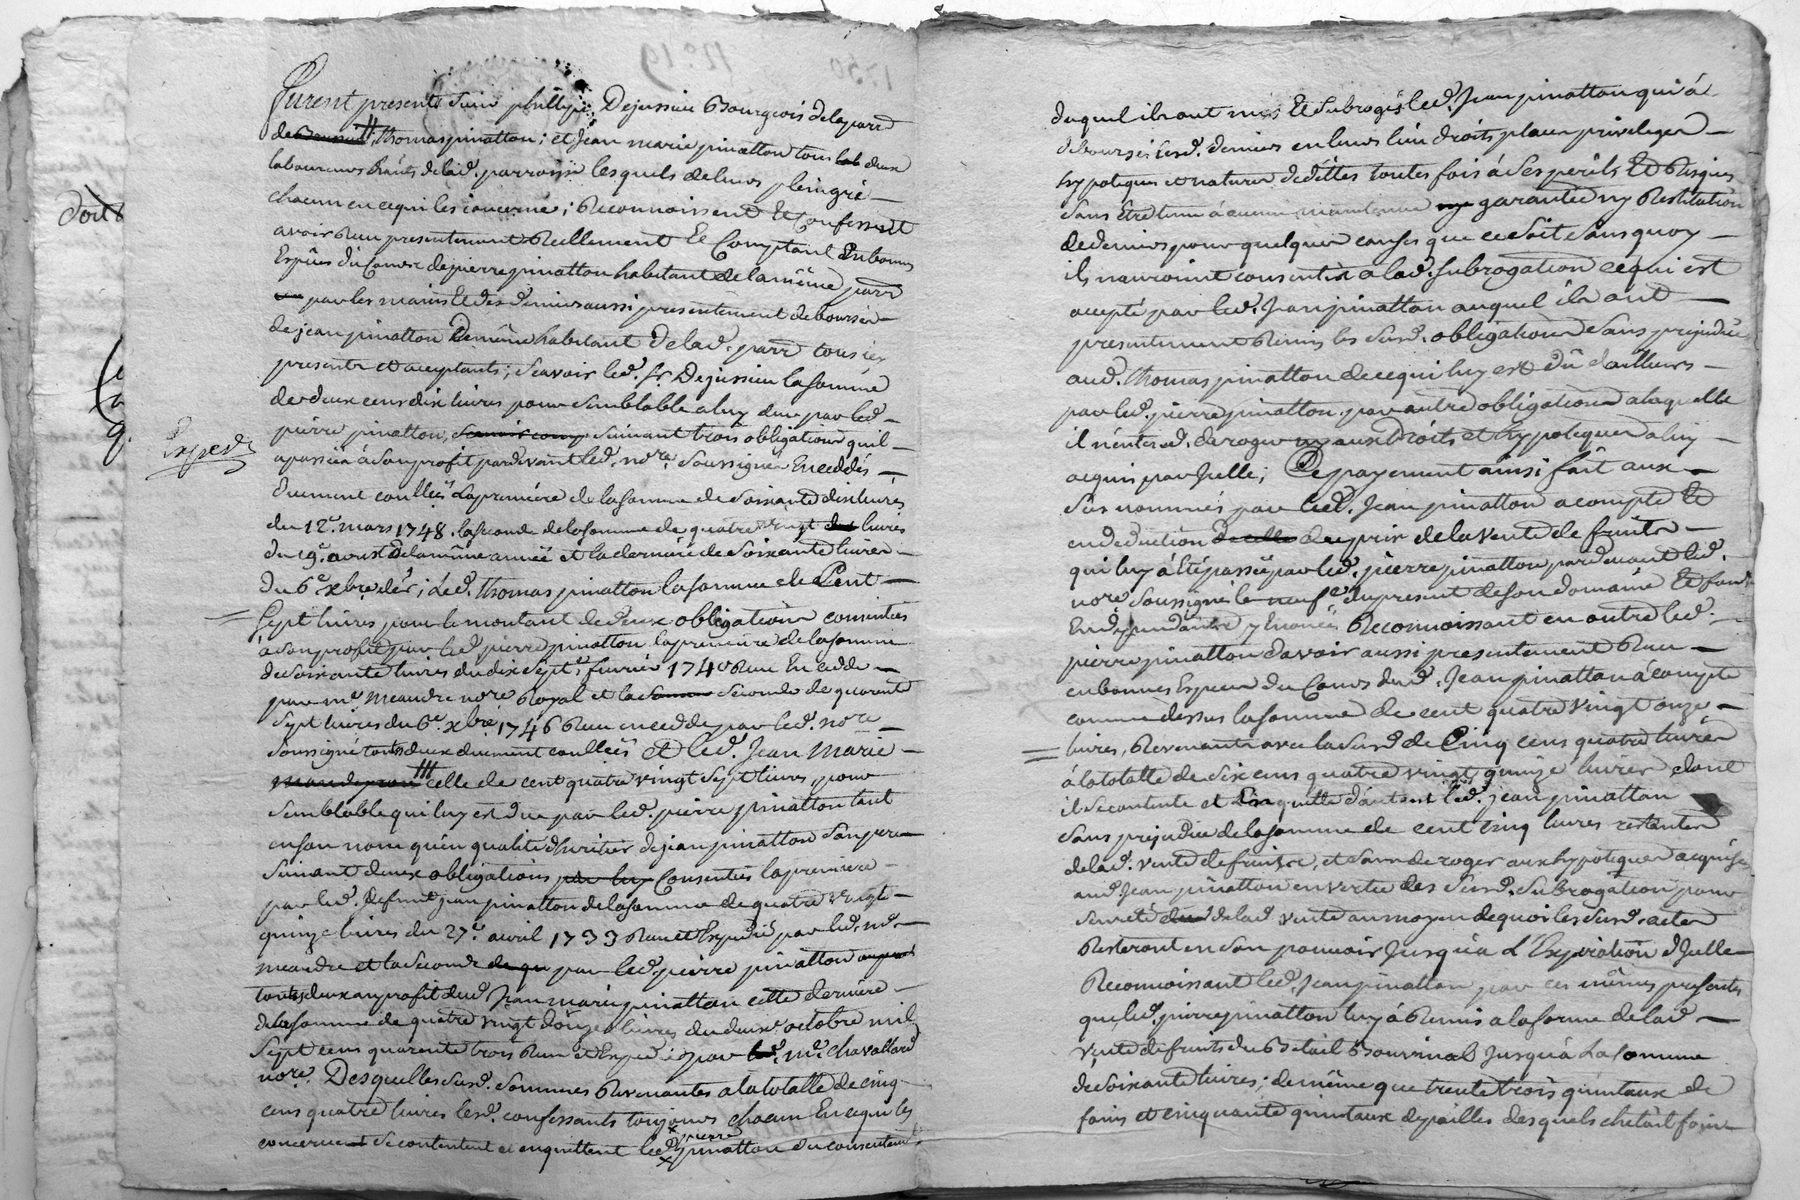 Furent presents Sieur phillipe Dejussieu Bourgeois de la parr
de Thomas pinatton; et Jean marie pinatton tous deux
laboureurs de lad. parroisse lesquels de leurs plein gré
chacun en ce qui les concerne; Reconnoissent Et Confessent
avoir Reçu presentement Reellement Et Comptant En bonnes
Espèces du Cours de pierre pinatton habitant de la même parr
par les mains Et des deniers aussi presentement deboursés
de jean pinatton De même habitant de lad. parr tous icy
presents et acceptants; Scavoir led. Sr. Dejussieu la somme
de deux cens dix livres pour Semblable a luy due par led.
pierre pinatton, suivant trois obligations qu'il
a passées à Son profit pardevant led. nore. Soussigné En ceddés
duement conllées La première de la somme de Soixante dix livres
du 12e. mars 1748. la seconde de la somme de quatre vingt livres
du 19e. aoust de la même année et la derniére de Soixante livres
du 6e xbre der; Led. Thomas pinatton la somme de Cent
Sept livres pour le montant de deux obligations consenties
à Son profit par led. pierre pinatton la premiere de la somme
de Soixante livres du dix Septe. fevrier 1740 Reçu En cedde
par me. meandre nore Royal et la Seconde de quarente
Sept livres du 6e xbre 1746 Reçu en cedde par led. nore
Soussigné toutes deux duement conllées Et led. Jean Marie
celle de cent quatre vingt Sept livres pour
Semblable qui luy est due par led. pierre pinatton tant
en son nom qu'en qualité d'heritier de jean pinatton Son pere
Suivant deux obligations Consenties la premiere
par led. defunt jean pinatton de la somme de quatre vingt
quinze livres du 27e. avril 1733 Reçu et Expedié par led. me.
meandre et la Seconde par led. pierre pinatton
toutes deux au profit dud. Jean marie pinatton cette derniere
de la somme de quatre vingt douze livres du deuxe octobre mil
Sept cens quarente trois Reçu et Expedié par me. chavallard
nore. Desquelles Susd. Sommes Revenantes a la totalle de cinq
cens quatre livres lesd. confessants toujours chacun En ce qui les
concerne Se contentent et en quittent led. pierre pinatton du consentement
Exped
doit
duquel ils ont mis Et Subrogés led. Jean pinatton qui a
deboursé lesd. deniers en leurs lieu droits place privileges
hypoteques et nature de dettes toutes fois à Ses perils Et Risques
Sans Etre tenu à aucune maintenue garantie ny Restitution
de deniers pour quelques causes que ce Soit Sans quoy
ils n'auroint consenti a lad. Subrogation ce qui est
accepté par led. Jean pinatton auquel ils ont
presentement Remis les Susd. obligations Sans prejudice
aud. Thomas pinatton de ce qui luy est dû d'ailleurs
par led. pierre pinatton par autre obligation a laquelle
il n'entend deroger ny aux Droits et hypoteques a luy
acquis par Jcelle; Ce payement ainsi fait aux
Sus nommés par led. Jean pinatton a compte Et
en deduction du prix de la vente de fruits
qui luy à Eté passée par led. pierre pinatton pardevant led.
nore Soussigné le neufe du present de Son domaine Et fonds
En dependants y Enoncés Reconnoissant en outre led.
pierre pinatton d'avoir aussi presentement Reçu
en bonnes Especes du Cours dud. Jean pinatton à compte
comme dessus la somme de cent quatre vingt onze
livres, Revenante avec la Susd. de Cinq cens quatre livres
à la totalle de Six cens quatre vingt quinze livres dont
il Se contente et En quitte d'autant led. jean pinatton
Sans prejudice de la somme de cent cinq livres restantes
de lad. vente de fruits, et Sans deroger aux hypoteques acquises
aud. Jean pinatton en vertu des Susd. Subrogations pour
Sureté de lad. vente au moyen de quoi les Susd. actes
Resteront en Son pouvoir Jusqu'à L'Expiration d'Jcelle
Reconnoissant led. Jean pinatton par ces mêmes presentes
que led. pierre pinatton luy à Remis a la forme de lad.
vente de fruits du Bétail Bouvinal Jusqu'à La Somme
de Soixante livres; de même que trente trois quintaux de
foins et cinquante quintaux de pailles desquels chétail foin